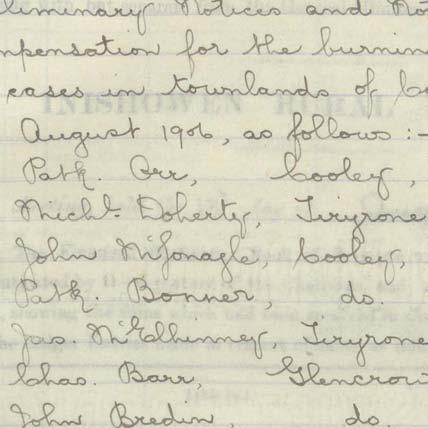 liminary Notices and Not
mpensation for the burnin
cases in townlands of Co
August 1906, as follows :-
Patk. Orr, Cooley,
Michl. Doherty, Tiryrone
John McGonagle, Cooley,
Patk. Bonner, do.
Jas. McElhinney, Tiryrone
Chas. Barr, Glencrow
John Bredin, do.
INISHOWEN RURAL